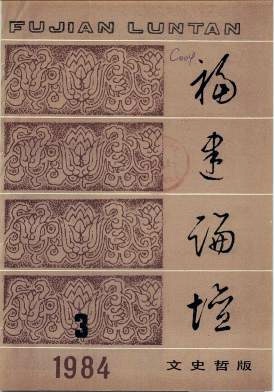 FUJIAN LUNTAN
福
建
论
坛
3
1984
文史哲版